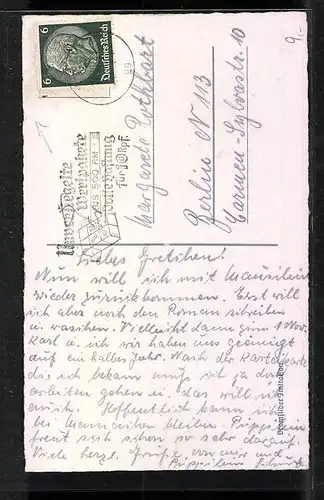 9,-
6 Deutsches Reich 6
99
Unversiegelte
Wertpakete
bis 500 RM
volle Haftung
für 10 Rpf.
Margarete Rothbart
Berlin N 113
Carmen-Sylvastr. 10
Liebes Gretchen!
Nun will ich mit Mausilein
wieder zurückkommen. Erst will
ich aber noch den Roman schreiben
u. waschen. Vielleicht dann zum 1 Nov.
u. ich wir haben uns geeinigt
auf ein halbes Jahr. Nach der Karte
die ich bekam muß ich ja doch
arbeiten gehen u. das will ich
auch. Hoffentlich kann ich
bei bleiben. Püppilein
freut sich schon so sehr darauf.
Viele herzl. Grüße von mir und
Püppilein